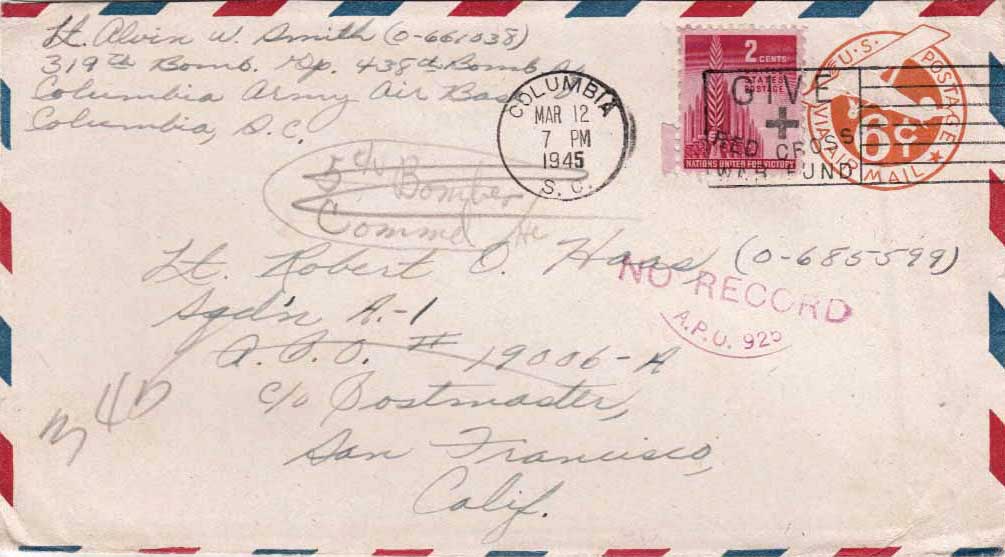 Lt. Alvin W. Smith (O-661038)
319th Bomb. Gp. 438th Bomb
Columbia Army Air Bas
Columbia, S.C.
COLUMBIA
MAR 12
7 PM
1945
S. C.
2 CENTS
STATES
POSTAGE
NATIONS UNITED FOR VICTORY
GIVE
+
RED CROSS
WAR FUND
U.S. POSTAGE
6¢
VIA AIR MAIL
c/o
5 Bomber
Commd
Lt. Robert O. Haas, (O-685599)
NO RECORD
A.P.O. 925
Sqd'n A-1
A.P.O. # 19006-A
c/o Postmaster,
San Francisco,
Calif.